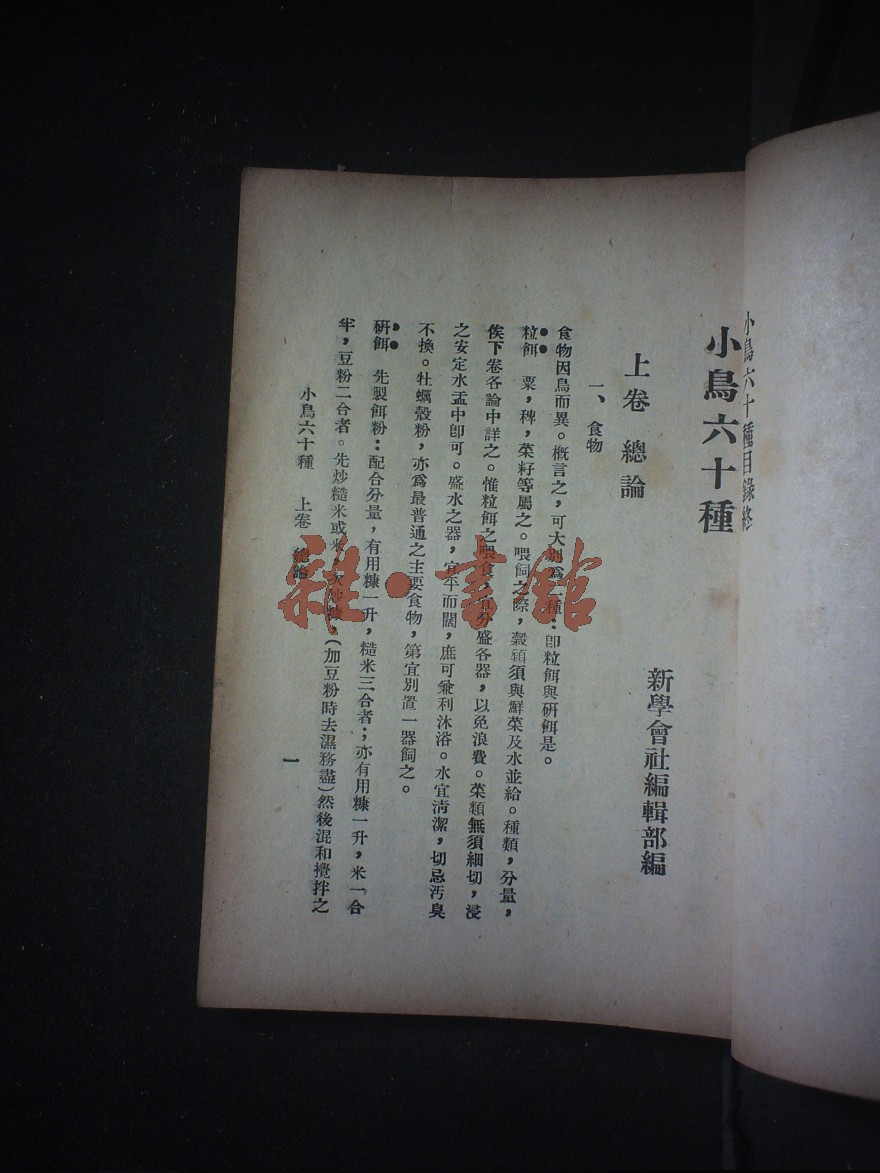 小鳥六十種目錄終
小鳥六十種
新學會社編輯部編
上卷 總論
一、食物
食物因鳥而異。概言之,可大別爲 種:卽粒餌與研餌是。
粒餌 粟,稗,菜籽等屬之。喂飼之際,穀類須與鮮菜及水並給。種類,分量,
俟下卷各論中詳之。惟粒餌之喂食,宜分盛各器,以免浪費。菜類無須細切,浸
之安定水盂中卽可。盛水之器,宜平而闊,庶可兼利沐浴。水宜清潔,切忌汚臭
不換。牡蠣殼粉,亦爲最普通之主要食物,第宜別置一器飼之。
研餌 先製餌粉:配合分量,有用糠一升,糙米三合者;亦有用糠一升,米一合
半,豆粉二合者。先炒糙米或米,次炒糠,(加豆粉時去濕務盡)然後混和攪拌之
小鳥六十種 上卷 總論
一
雜·書館